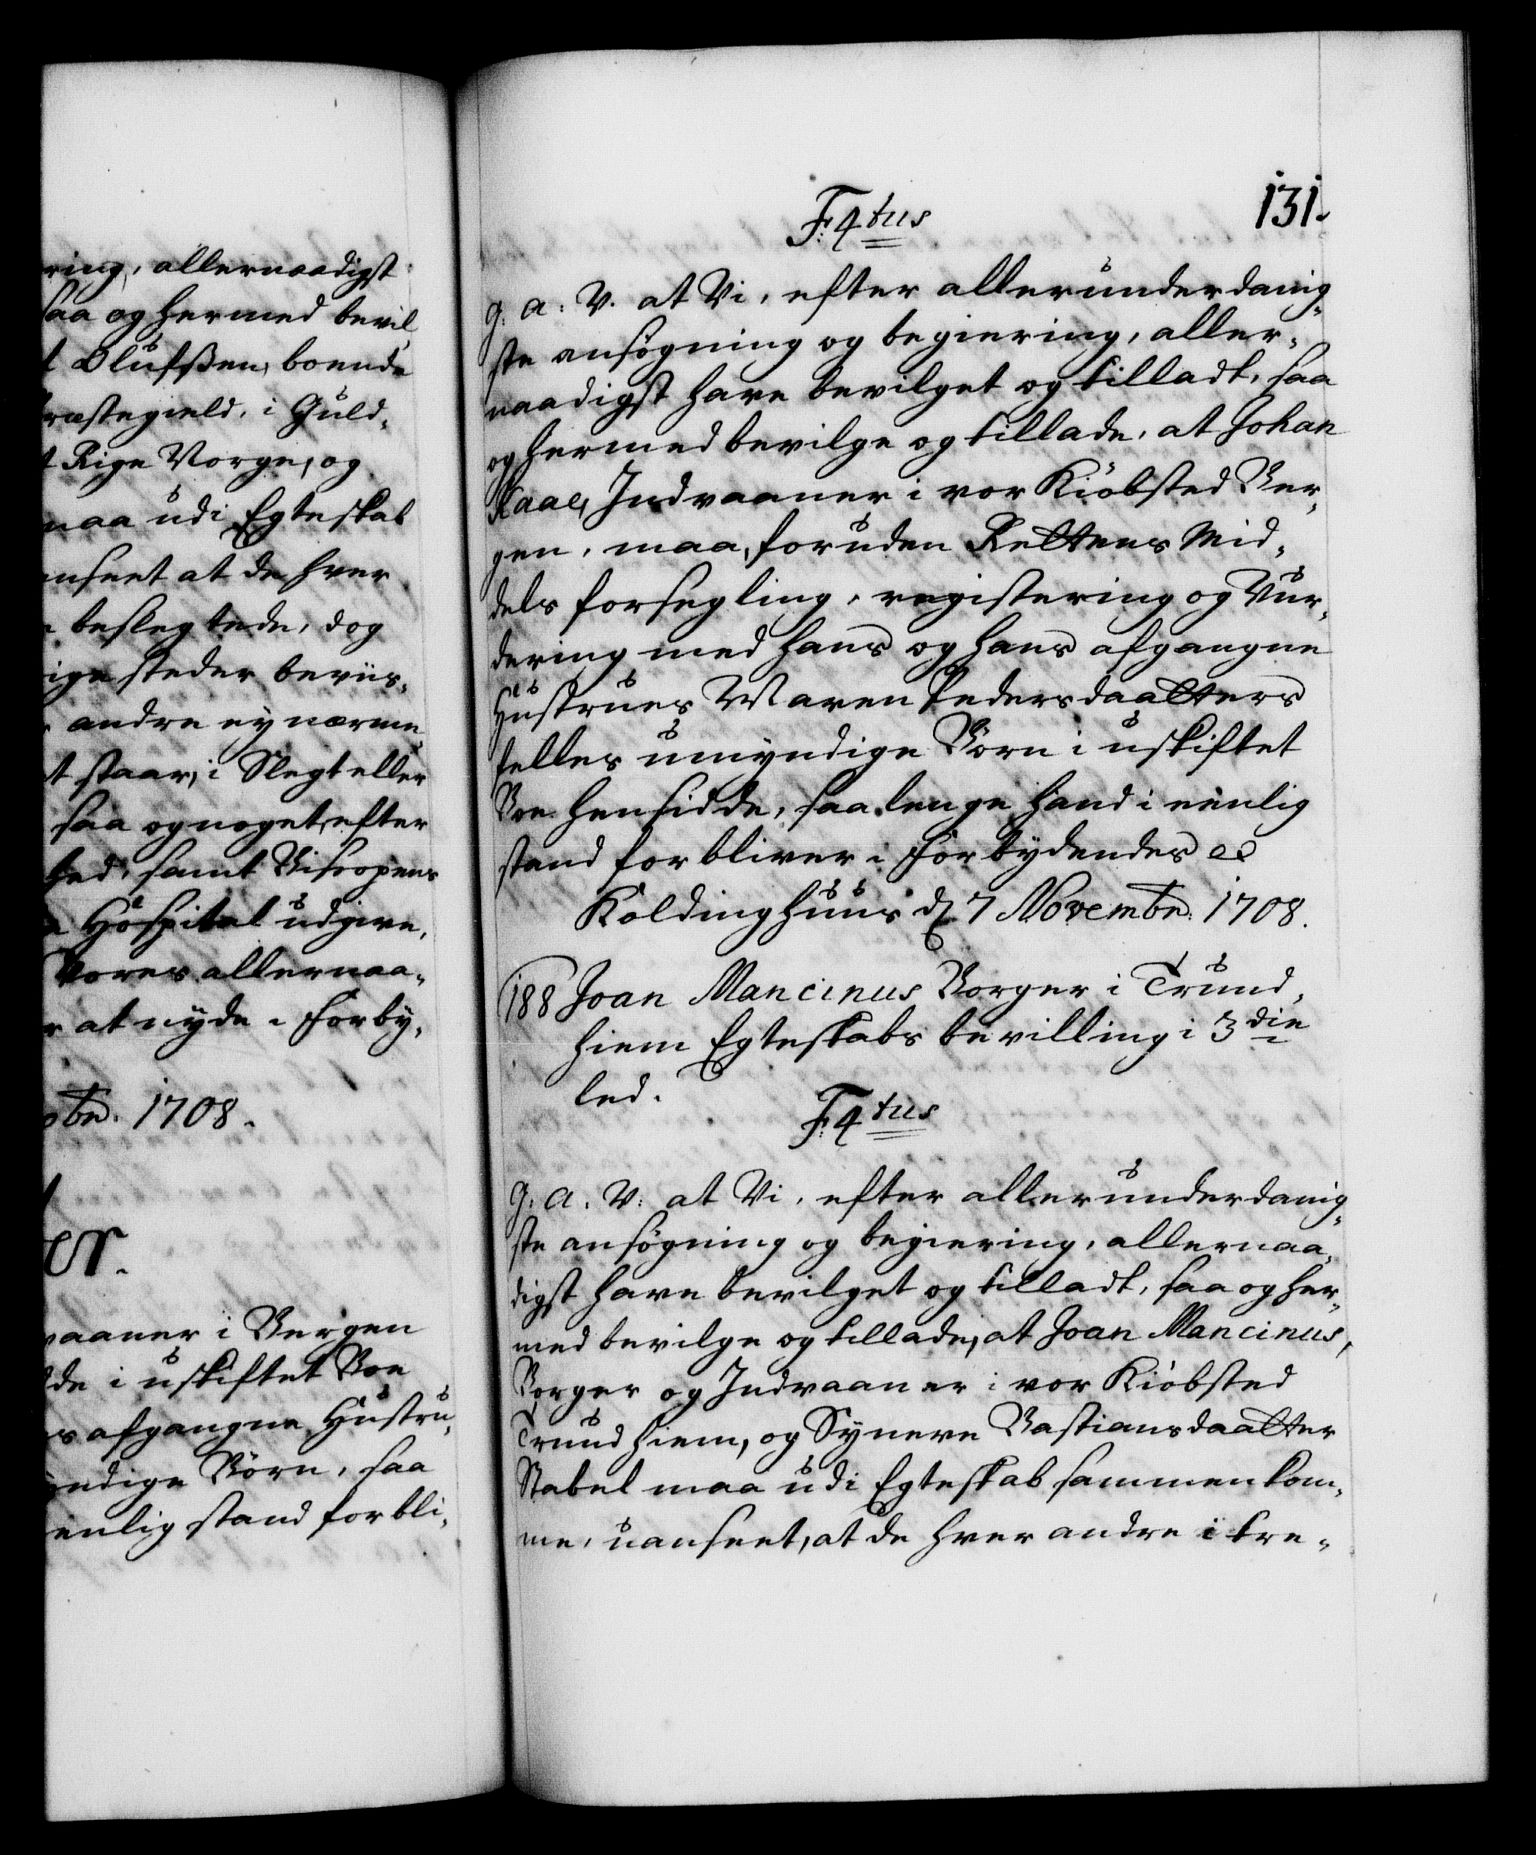 ring, allernaadigst
saa og hermed bevil
Olufssen, boende
ræstegield, i Guld,
Rige Norge, og
maa udi Egteskab
anseet at de hver
beslegtede, dog
ige steder beviis,
andre ey nærme
t staar, i Slegt eller
saa og noget efter
hed, samt Biscopens
Hospital udgive,
Vores allernaa,
r at nyde. Forby,
1708.
er.
vaaner i Bergen
de i uskiftet Boe
s afgangne Hustru,
yndige Börn, saa
enlig stand forbli,
131.
F: 4tus
G: A: V. at Vi, efter allerunderdanig,
ste ansøgning og begiering, aller,
naadigst have bevilget og tilladt, saa
og hermed bevilge og tillade, at Johan
Kaae, Indvaaner i vor Kiöbsted Ber,
gen, maa, foruden Rettens Mid,
dels forsegling, registering og Vur,
dering med hans og hans afgangne
Hustrues Maren Pedersdaatters
felles umyndige Börn i uskiftet
Boe hensidde, saa lenge hand i eenlig
stand forbliver. Forbydendes etc
Koldinghuus d. 7 Novembr. 1708.
188 Joan Mancinus Borger i Trund,
hiem Egteskabs bevilling i 3die
led.
F: 4tus
G: A: V: at Vi, efter allerunderdanig,
ste ansøgning og begiering, allernaa,
digst have bevilget og tilladt, saa og her,
med bevilge og tillade, at Joan Mancinus,
Borger og Indvaaner i vor Kiöbsted
Trundhiem, og Synneve Bastiansdaatter
Stabel maa udi Egteskab sammenkom,
me, uanseet, at de hver andre i tre,